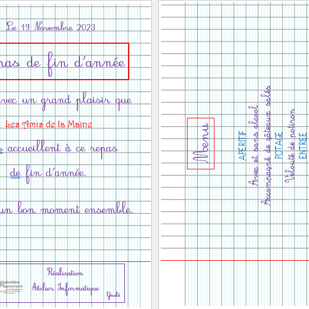 Le 19 Novembre 2023
de fin d'année
un grand plaisir que
Les Amis de la Maine
accueillent à ce repas
de fin d'année.
un bon moment ensemble.
Réalisation
Atelier Informatique
Menu
APERITIF
Avec et sans alcool
Accompagné de gâteaux salés
POTAGE
Velouté de potiron
ENTRÉE